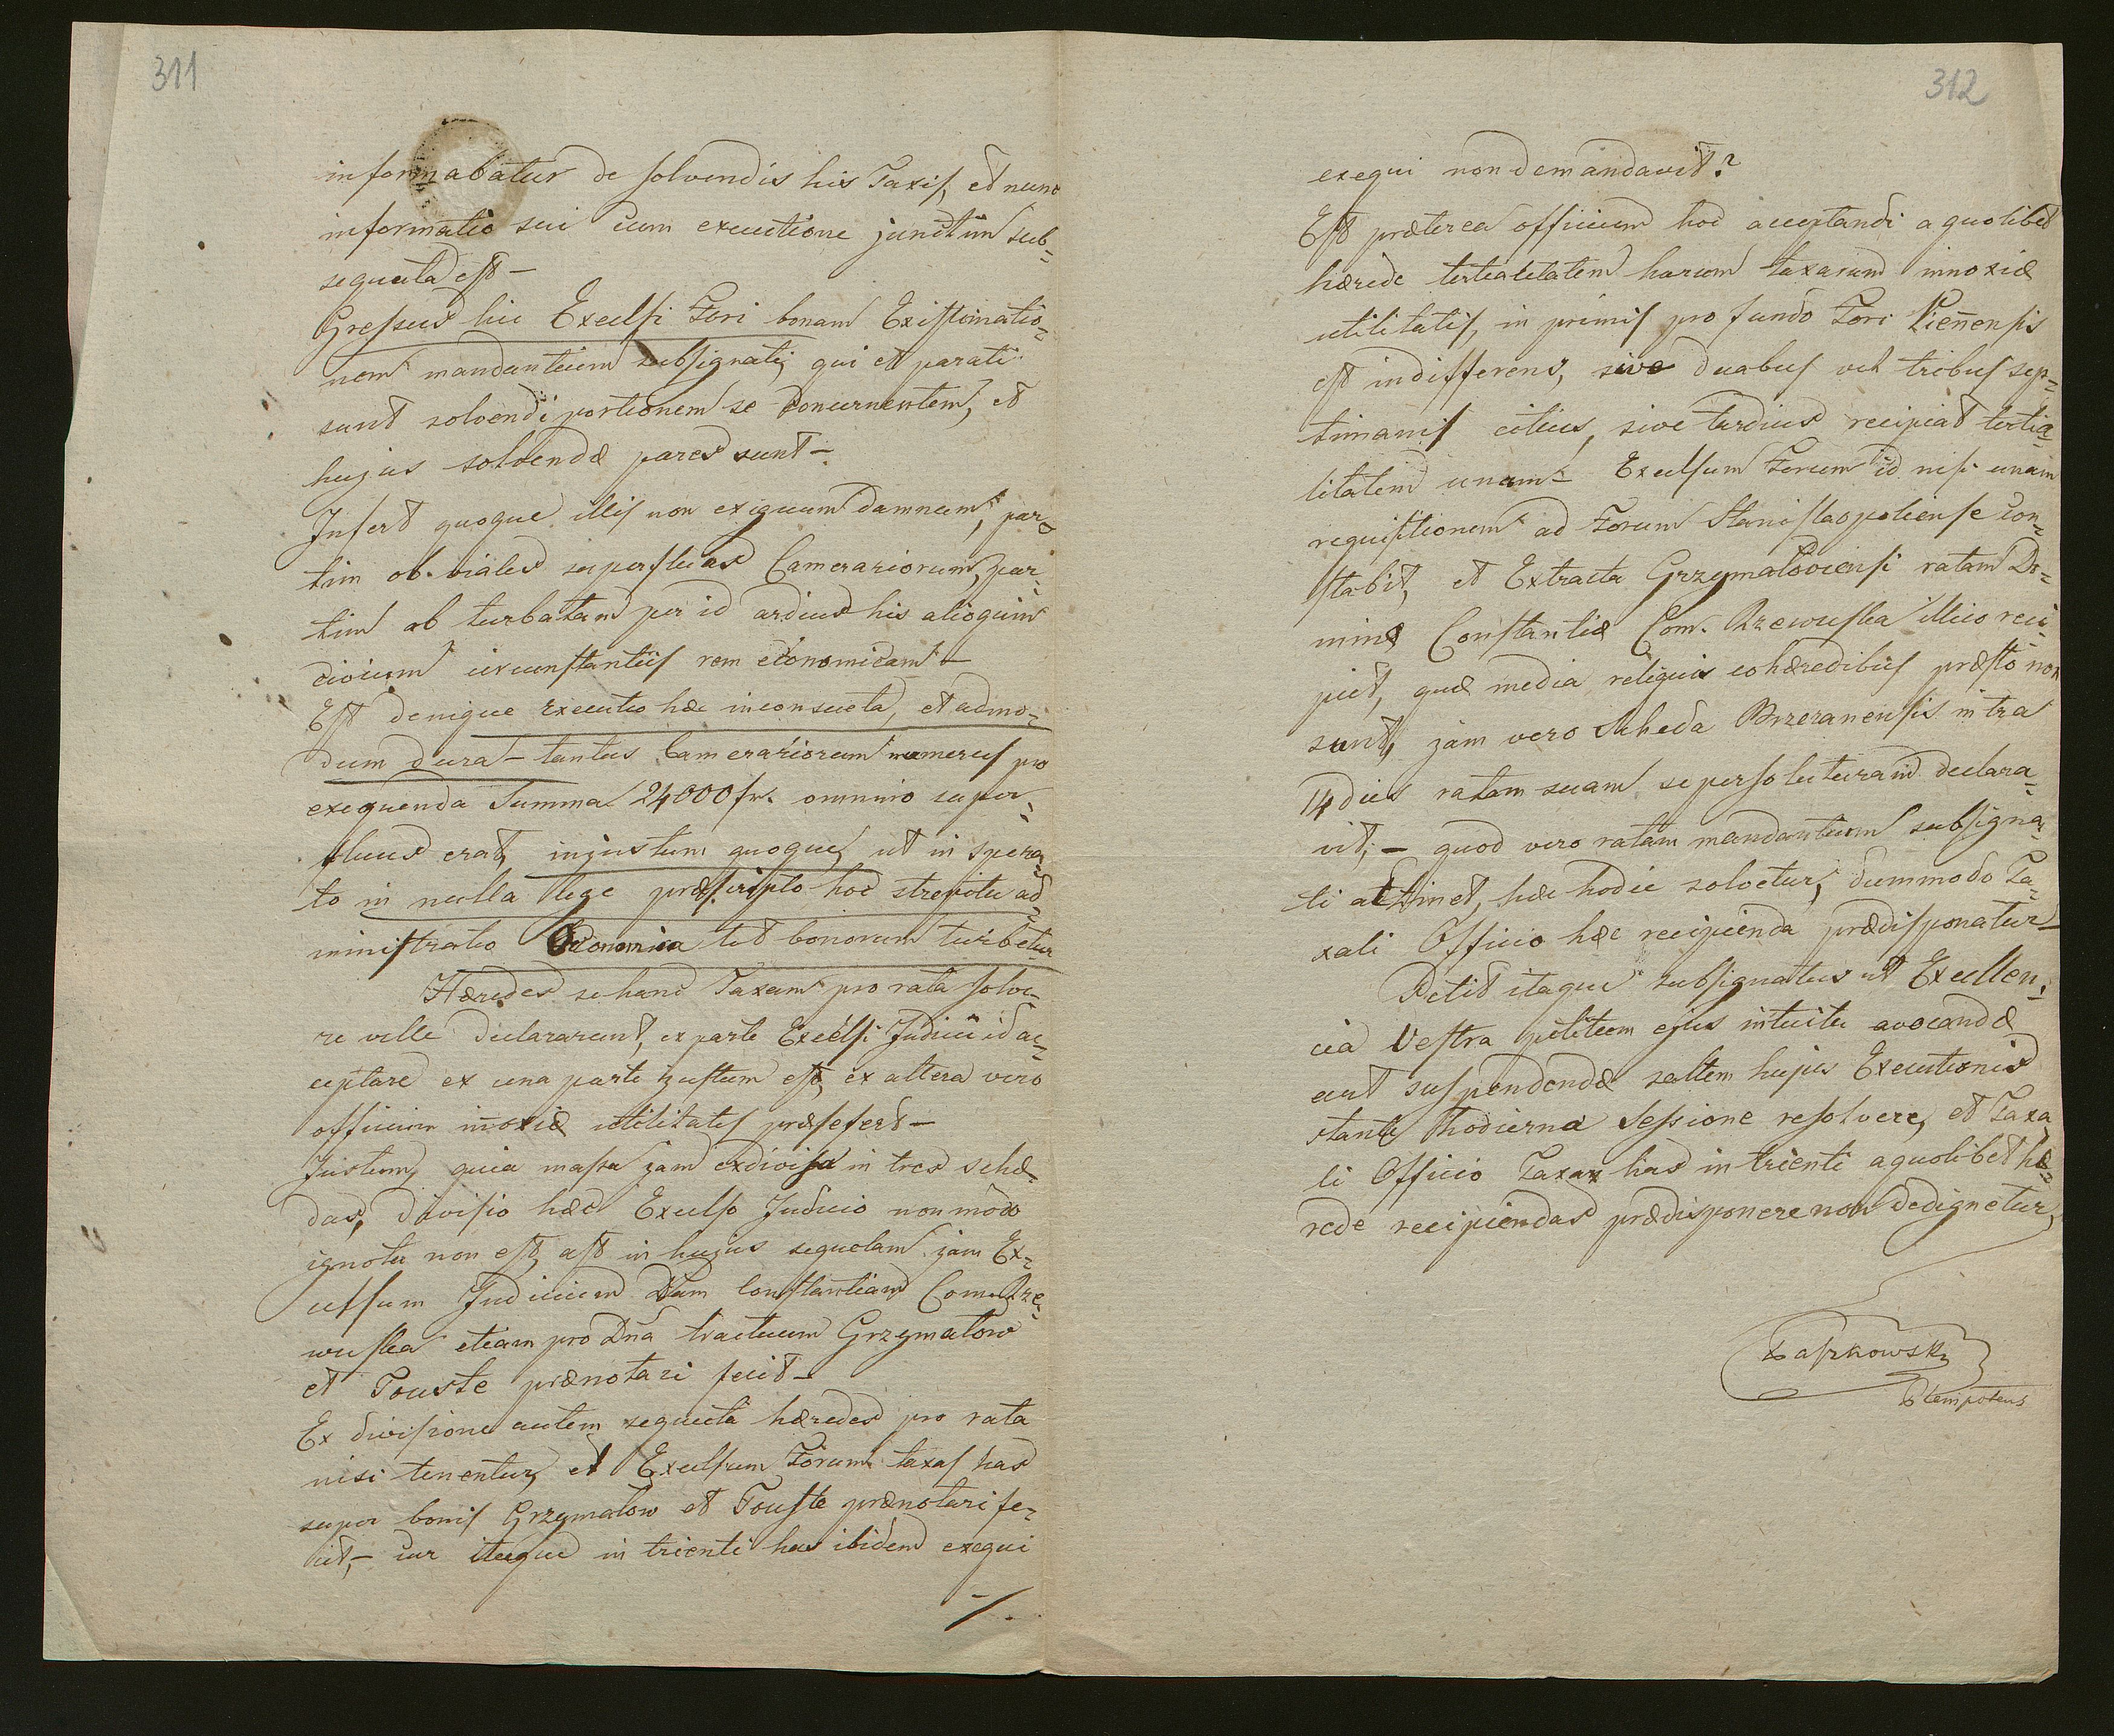 311
informabatur de solvendis his Taxis, et nunc
informatio sui cum executione junctim sub=
sequuta est —
Gressus hic Excelsi Fori bonam Existimatio=
nem mandantium subsignati, qui et parati
sunt solvendi portionem se concernentem, et
hujus solvendæ pares sunt —
Infert quoque illis non exiguum damnum, par=
tim ob viales superfluas Camerariorum, par=
tim ob turbatam per id arduis his alioquin
civium circumstantiis rem economicam —
Est denique Executio hæc inconsueta, et admo=
dum dura — tantus Camerariorum numerus pro
exequenda Summa 24000 fr. omnino super=
fluus erat, injustum quoque, ut in spera=
to in nulla lege præscripto hoc strepitu ad=
ministratio Oeconomica tot bonorum turbetur
Hæredes se hanc Taxam pro rata solve=
re velle declararunt, ex parte Excelsi Judicii id ac=
ceptare ex una parte justum est, ex altera vero
officium inoxiæ utilitatis præsefert —
Justum, quia massa jam exdivisa in tres sche=
das, divisio hæc Excelso Judicio non modo
ignota non est, ast in hujus sequelam jam Ex=
celsum Judicium Dnam Constantiam Com. Rze=
wuska etiam pro Dna tractuum Grzymałow
et Touste prænotari fecit —
Ex divisione autem sequuta hæredes pro rata
nisi tenentur, et Excelsum Forum taxas has
super bonis Grzymałow et Touste prænotari fe=
cit, — cur itaque in trienti has ibidem exequi
./.
312
exequi non demandavit?
Est præterea officium hoc acceptandi a quolibet
hærede tertialitatem harum taxarum innoxiæ
utilitatis, in primis pro fundo Fori Viennensis
est indifferens, sive duabus vel tribus sep=
timanis citius, sive tardius recipiat tertia=
litatem unam — Excelsum Forum id nisi unam
requisitionem ad Forum Stanislaopoliense con=
stabit, et Extracta Grzymałoviensi ratam Do=
minæ Constantiæ Com. Rzewuska illico reci=
piet, quæ media reliquis cohæredibus præsto non
sunt, jam vero Scheda Brzezanensis intra
14 dies ratam suam se persoluturam declara=
vit, — quod vero ratam mandantium subsigna=
ti attinet, hæc hodie solvetur, dummodo Ta=
xali Officio hæc recipienda prædisponatur —
Petit itaque subsignatus ut Excellen=
cia Vestra petitum ejus intuitu avocandæ
aut suspendendæ saltem hujus Executionis
stante hodierna Sessione resolvere, et Taxa=
li Officio Taxas has in trienti a quolibet hæ=
rede recipiendas prædisponere non dedignetur,
Plenipotens